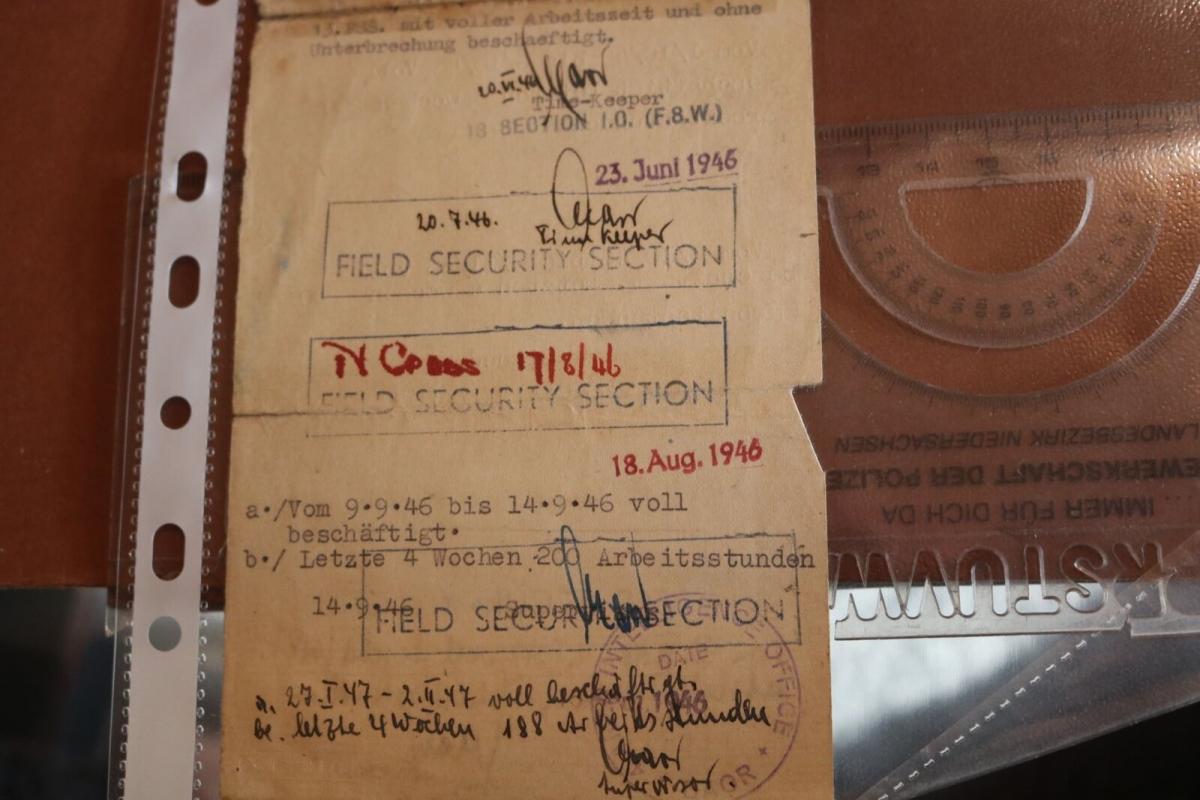 13. FSS. mit voller Arbeitszeit und ohne
Unterbrechung beschaeftigt.
20.VI.46
Time-Keeper
13 SECTION I.O. (F.S.W.)
23. Juni 1946
20.7.46.
Time keeper
FIELD SECURITY SECTION
17/8/46
FIELD SECURITY SECTION
18. Aug. 1946
a./Vom 9.9.46 bis 14.9.46 voll
beschäftigt.
b./ Letzte 4 Wochen 200 Arbeitsstunden
14.9.46
FIELD SECURITY SECTION
DATE
1946
OFFICE
a. 27.I.47 - 2.II.47 voll beschäftigt.
be. letzte 4 Wochen 188 Arbeitsstunden
supervisor.
LANDESBEZIRK NIEDERSACHSEN
GEWERKSCHAFT DER POLIZEI
IMMER FÜR DICH DA
RSTUVW